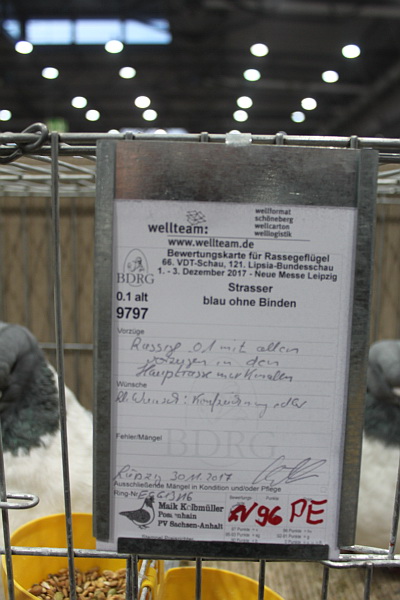 wellteam:
wellformat
schöneberg
wellcarton
welllogistik
www.wellteam.de
Bewertungskarte für Rassegeflügel
66. VDT-Schau, 121. Lipsia-Bundesschau
1. - 3. Dezember 2017 - Neue Messe Leipzig
BDRG
Strasser
0.1 alt
blau ohne Binden
9797
Vorzüge
Rassige 0,1 mit allen
Vorzügen in den
Hauptrassemerkmalen
Wünsche
Fehler/Mängel
BDRG
Leipzig 30.11.2017
Ausschließende Mängel in Kondition und/oder Pflege
Ring-Nr.
Maik Kolbmüller
Posenhain
PV Sachsen-Anhalt
HV 96 PE